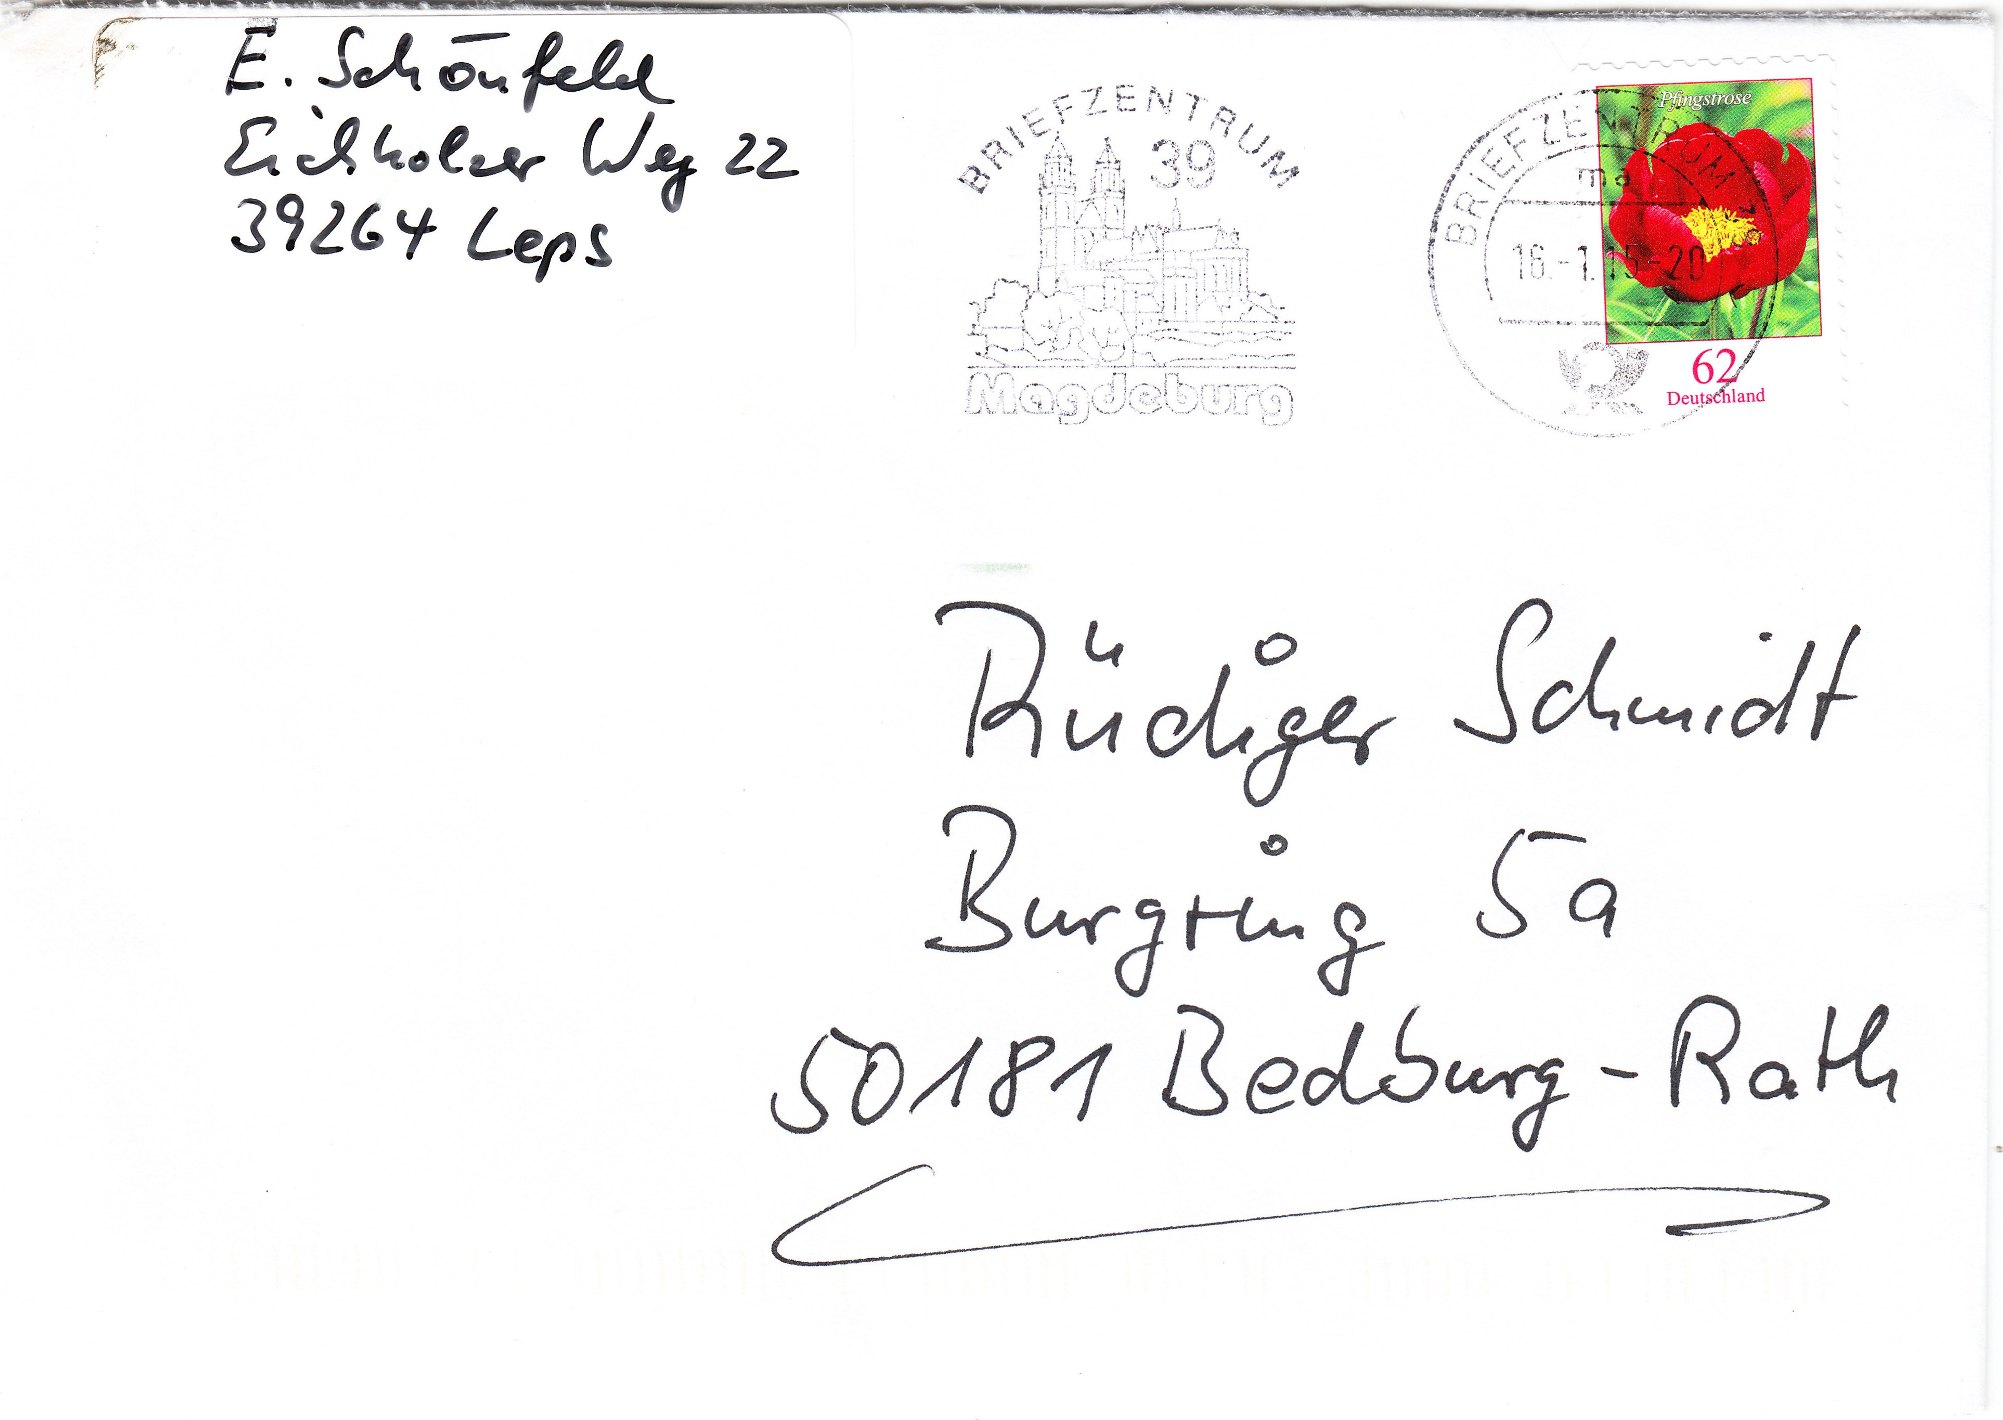 E. Schönfeld
Eichholzer Weg 22
39264 Leps
BRIEFZENTRUM
39
Magdeburg
BRIEFZENTRUM
ma
16.-1.15-20
Pfingstrose
62
Deutschland
Rüdiger Schmidt
Burgring 5a
50181 Bedburg-Rath